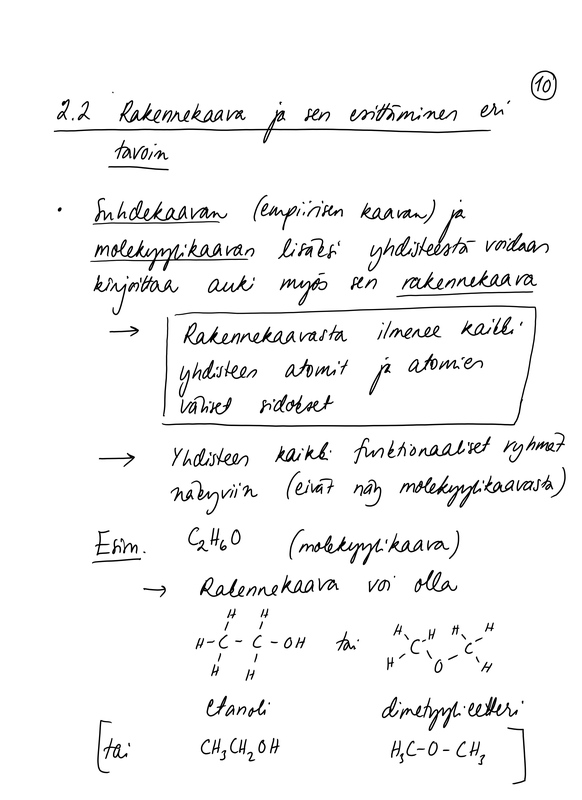 10
2.2 Rakennekaava ja sen esittäminen eri
tavoin
• Suhdekaavan (empiirisen kaavan) ja
molekyylikaavan lisäksi yhdisteestä voidaan
kirjoittaa auki myös sen rakennekaava
→ Rakennekaavasta ilmenee kaikki
yhdisteen atomit ja atomien
väliset sidokset
→ Yhdisteen kaikki funktionaaliset ryhmät
näkyviin (eivät näy molekyylikaavasta)
Esim. C₂H₆O (molekyylikaava)
→ Rakennekaava voi olla
H H H H H H
H-C-C-OH tai C C
H H H O H
etanoli dimetyylieetteri
[tai CH₃CH₂OH H₃C-O-CH₃]